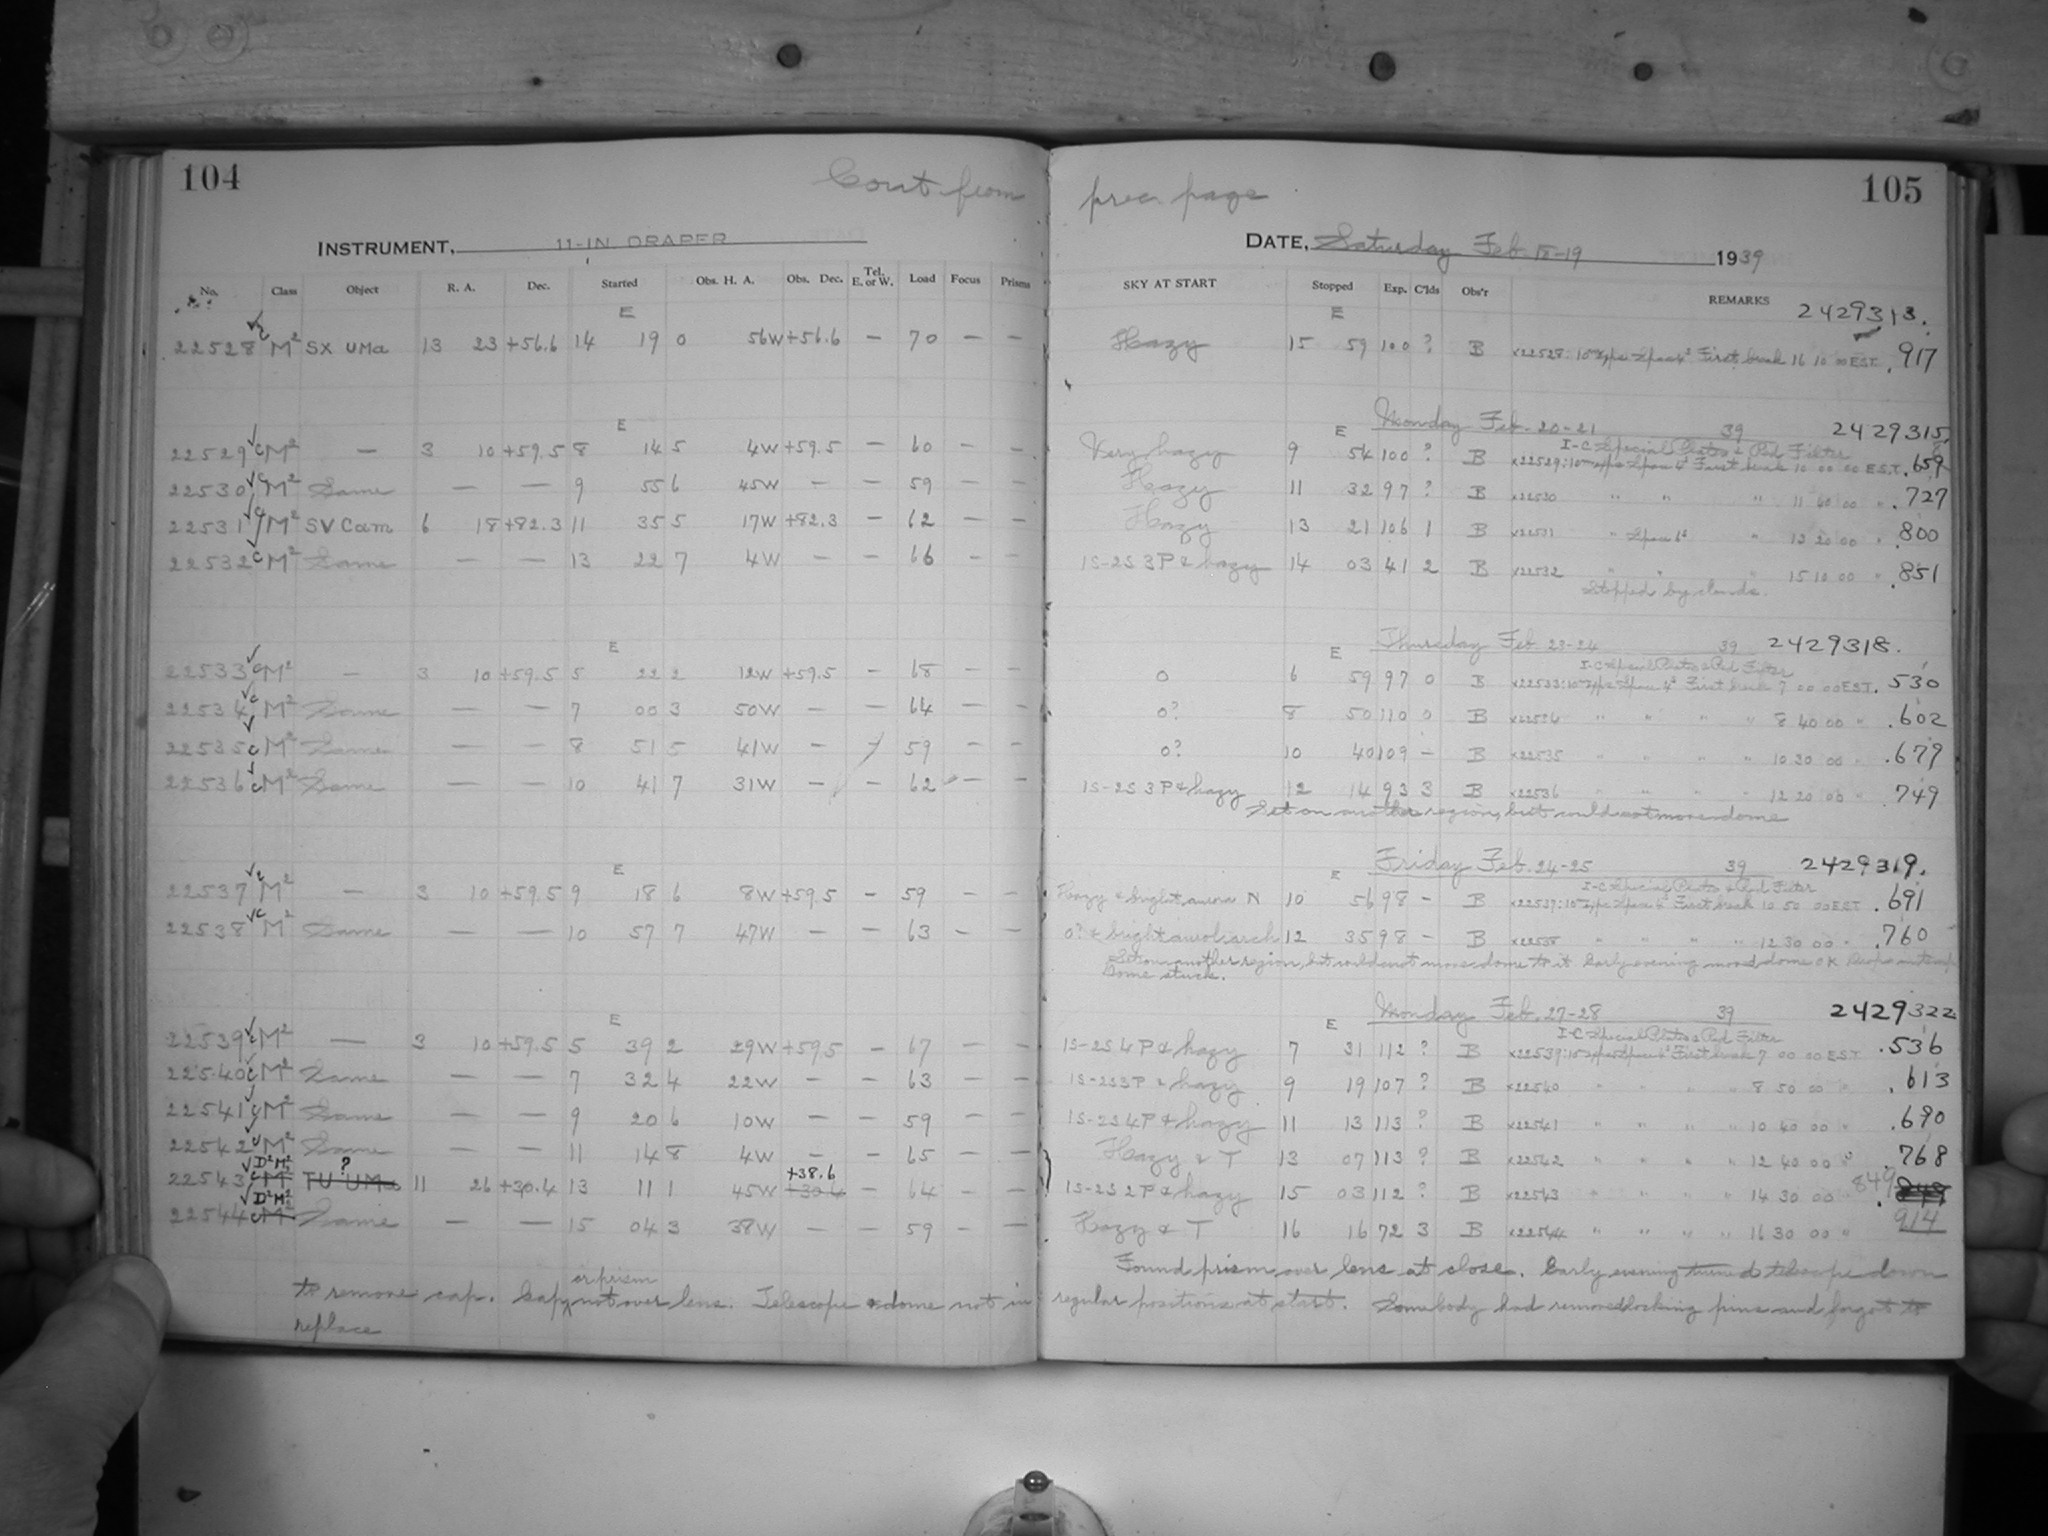 104 Cont from prec. page 105
INSTRUMENT, 11-IN DRAPER DATE, Saturday Feb 18-19 1939
No. Class Object R. A. Dec. Started Obs. H. A. Obs. Dec. Tel. E. or W. Load Focus Prisms SKY AT START Stopped Exp. C'lds Obs'r REMARKS
E E 2429313.
22528 M² SX UMa 13 23 +56.6 14 19 0 56W +56.6 — 70 — — Hazy 15 59 100 ? B x22528: First break 16 10 00 EST .917
Monday Feb. 20-21 39 2429315.
E E I-C Special Plates & Red Filter
22529 cM² — 3 10 +59.5 8 14 5 4W +59.5 — 60 — — Very hazy 9 54 100 ? B x22529: First break 10 00 00 EST. .659
22530 cM² Same — — 9 55 6 45W — — 59 — — Hazy 11 32 97 ? B x22530 " " " 11 40 00 " .727
22531 cM² SV Cam 6 18 +82.3 11 35 5 17W +82.3 — 62 — — Hazy 13 21 106 1 B x22531 " " 13 20 00 " .800
22532 cM² Same — — 13 22 7 4W — — 66 — — 1S-2S 3P & hazy 14 03 41 2 B x22532 " " " 15 10 00 " .851
Stopped by clouds.
Thursday Feb 23-24 39 2429318.
E E I-C Special Plates & Red Filter
22533 cM² — 3 10 +59.5 5 22 2 12W +59.5 — 68 — — 0 6 59 97 0 B x22533: First break 7 00 00 EST. .530
22534 cM² Same — — 7 00 3 50W — — 64 — — 0? 8 50 110 0 B x22534 " " " " 8 40 00 " .602
22535 cM² Same — — 8 51 5 41W — — 59 — — 0? 10 40 109 — B x22535 " " " " 10 30 00 " .679
22536 cM² Same — — 10 41 7 31W — — 62 — — 1S-2S 3P & hazy 12 14 93 3 B x22536 " " " " 12 20 00 " .749
Set on another region, but could not move dome
Friday Feb. 24-25 39 2429319.
E E I-C Special Plates & Red Filter
22537 cM² — 3 10 +59.5 9 18 6 8W +59.5 — 59 — — Hazy & bright aurora N 10 56 98 — B x22537: First break 10 50 00 EST .691
22538 cM² Same — — 10 57 7 47W — — 63 — — 0? & bright auroral arch 12 35 98 — B x22538 " " " " 12 30 00 " .760
Set on another region, but could not move dome to it Early evening moved dome OK
Dome stuck.
Monday Feb. 27-28 39 2429322
E E I-C Special Plates & Red Filter
22539 cM² — 3 10 +59.5 5 39 2 29W +59.5 — 67 — — 1S-2S 4P & hazy 7 31 112 ? B x22539: First break 7 00 00 EST .536
22540 cM² Same — — 7 32 4 22W — — 63 — — 1S-2S 3P & hazy 9 19 107 ? B x22540 " " " " 8 50 00 " .613
22541 cM² Same — — 9 20 6 10W — — 59 — — 1S-2S 4P & hazy 11 13 113 ? B x22541 " " " " 10 40 00 " .690
22542 cM² Same — — 11 14 8 4W — — 65 — — Hazy & T 13 07 113 ? B x22542 " " " " 12 40 00 " .768
D²M² ? +38.6
22543 cM² TU UMa 11 26 +30.4 13 11 1 45W +30.4 — 64 — — 1S-2S 2P & hazy 15 03 112 ? B x22543 " " " " 14 30 00 " 849
D²M²
22544 cM² Same — — 15 04 3 38W — — 59 — — Hazy & T 16 16 72 3 B x22544 " " " " 16 30 00 " 914
Found prism over lens at close. Early evening turned telescope down
to remove cap. Cap or prism not over lens. Telescope & dome not in regular positions at start. Somebody had removed locking pins and forgot to
replace